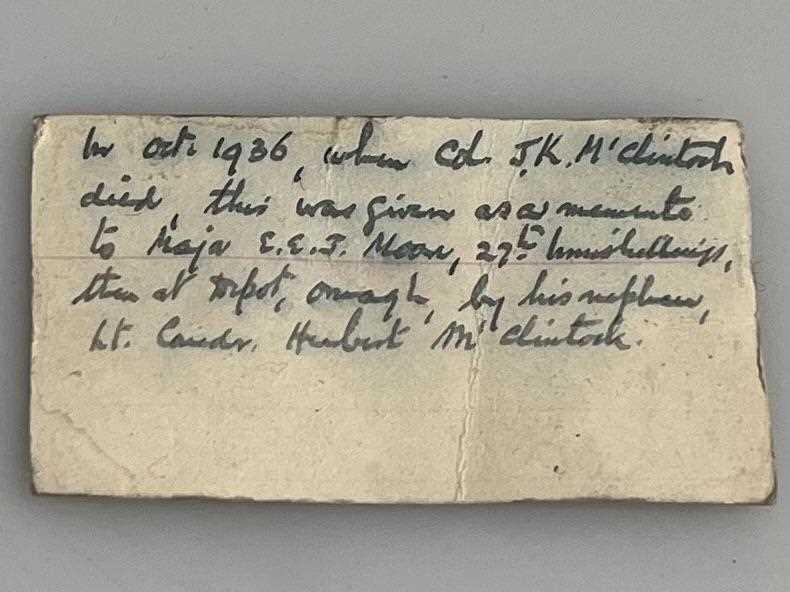 In Oct. 1936, when Col. J.K. McClintock
died, this was given as a memento
to Major E.E.J. Moore, 27th Inniskillings,
then at Depot, Omagh, by his nephew,
Lt. Comdr. Hubert McClintock.